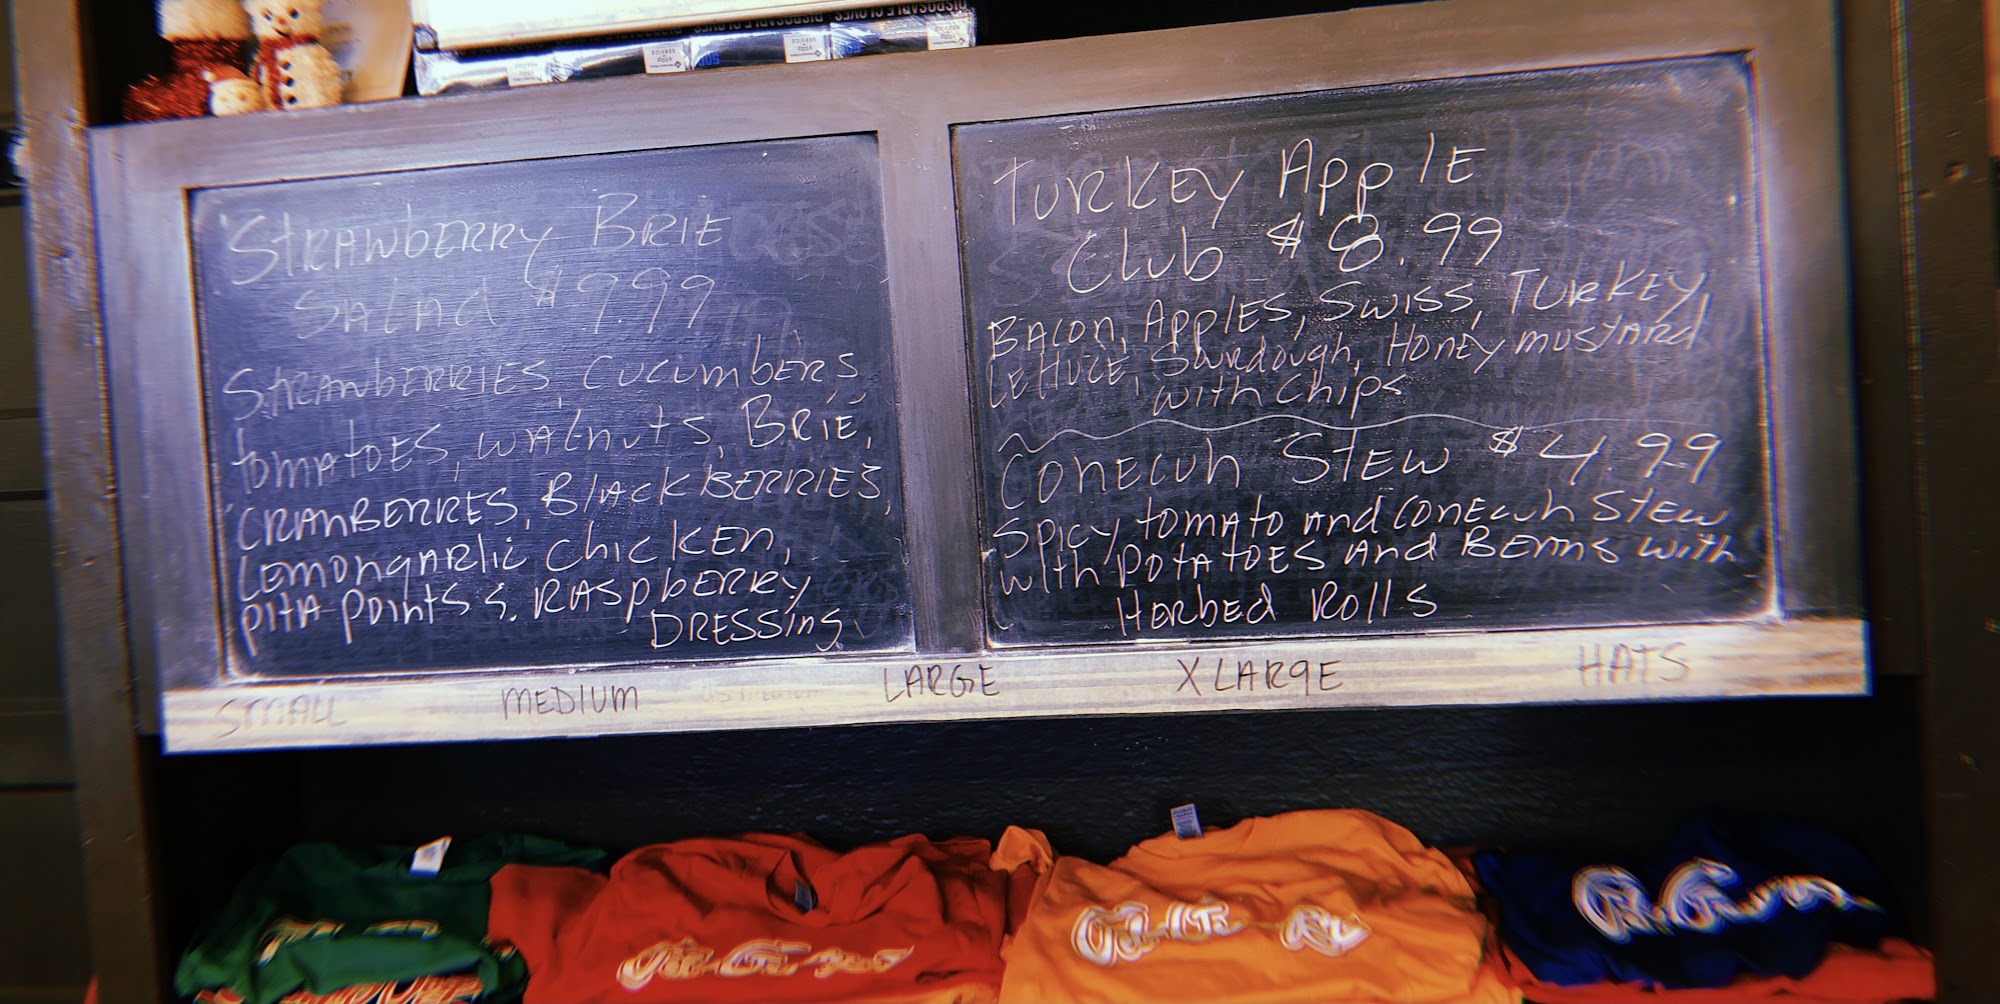 STRAWBERRY BRIE
SALAD $9.99
STRAWBERRIES, CUCUMBERS,
TOMATOES, WALNUTS, BRIE,
CRANBERRES, BLACKBERRIES,
LEMONGARLIC CHICKEN,
PITA POINTS S. RASPBERRY
DRESSING
TURKEY APPLE
CLUB $8.99
BACON, APPLES, SWISS, TURKEY,
LETTUCE, SOURDOUGH, HONEY MUSTARD
WITH CHIPS
CONECUH STEW $4.99
SPICY TOMATO AND CONECUH STEW
WITH POTATOES AND BEANS WITH
HERBED ROLLS
SMALL
MEDIUM
LARGE
XLARGE
HATS
DISPOSABLE GLOVES